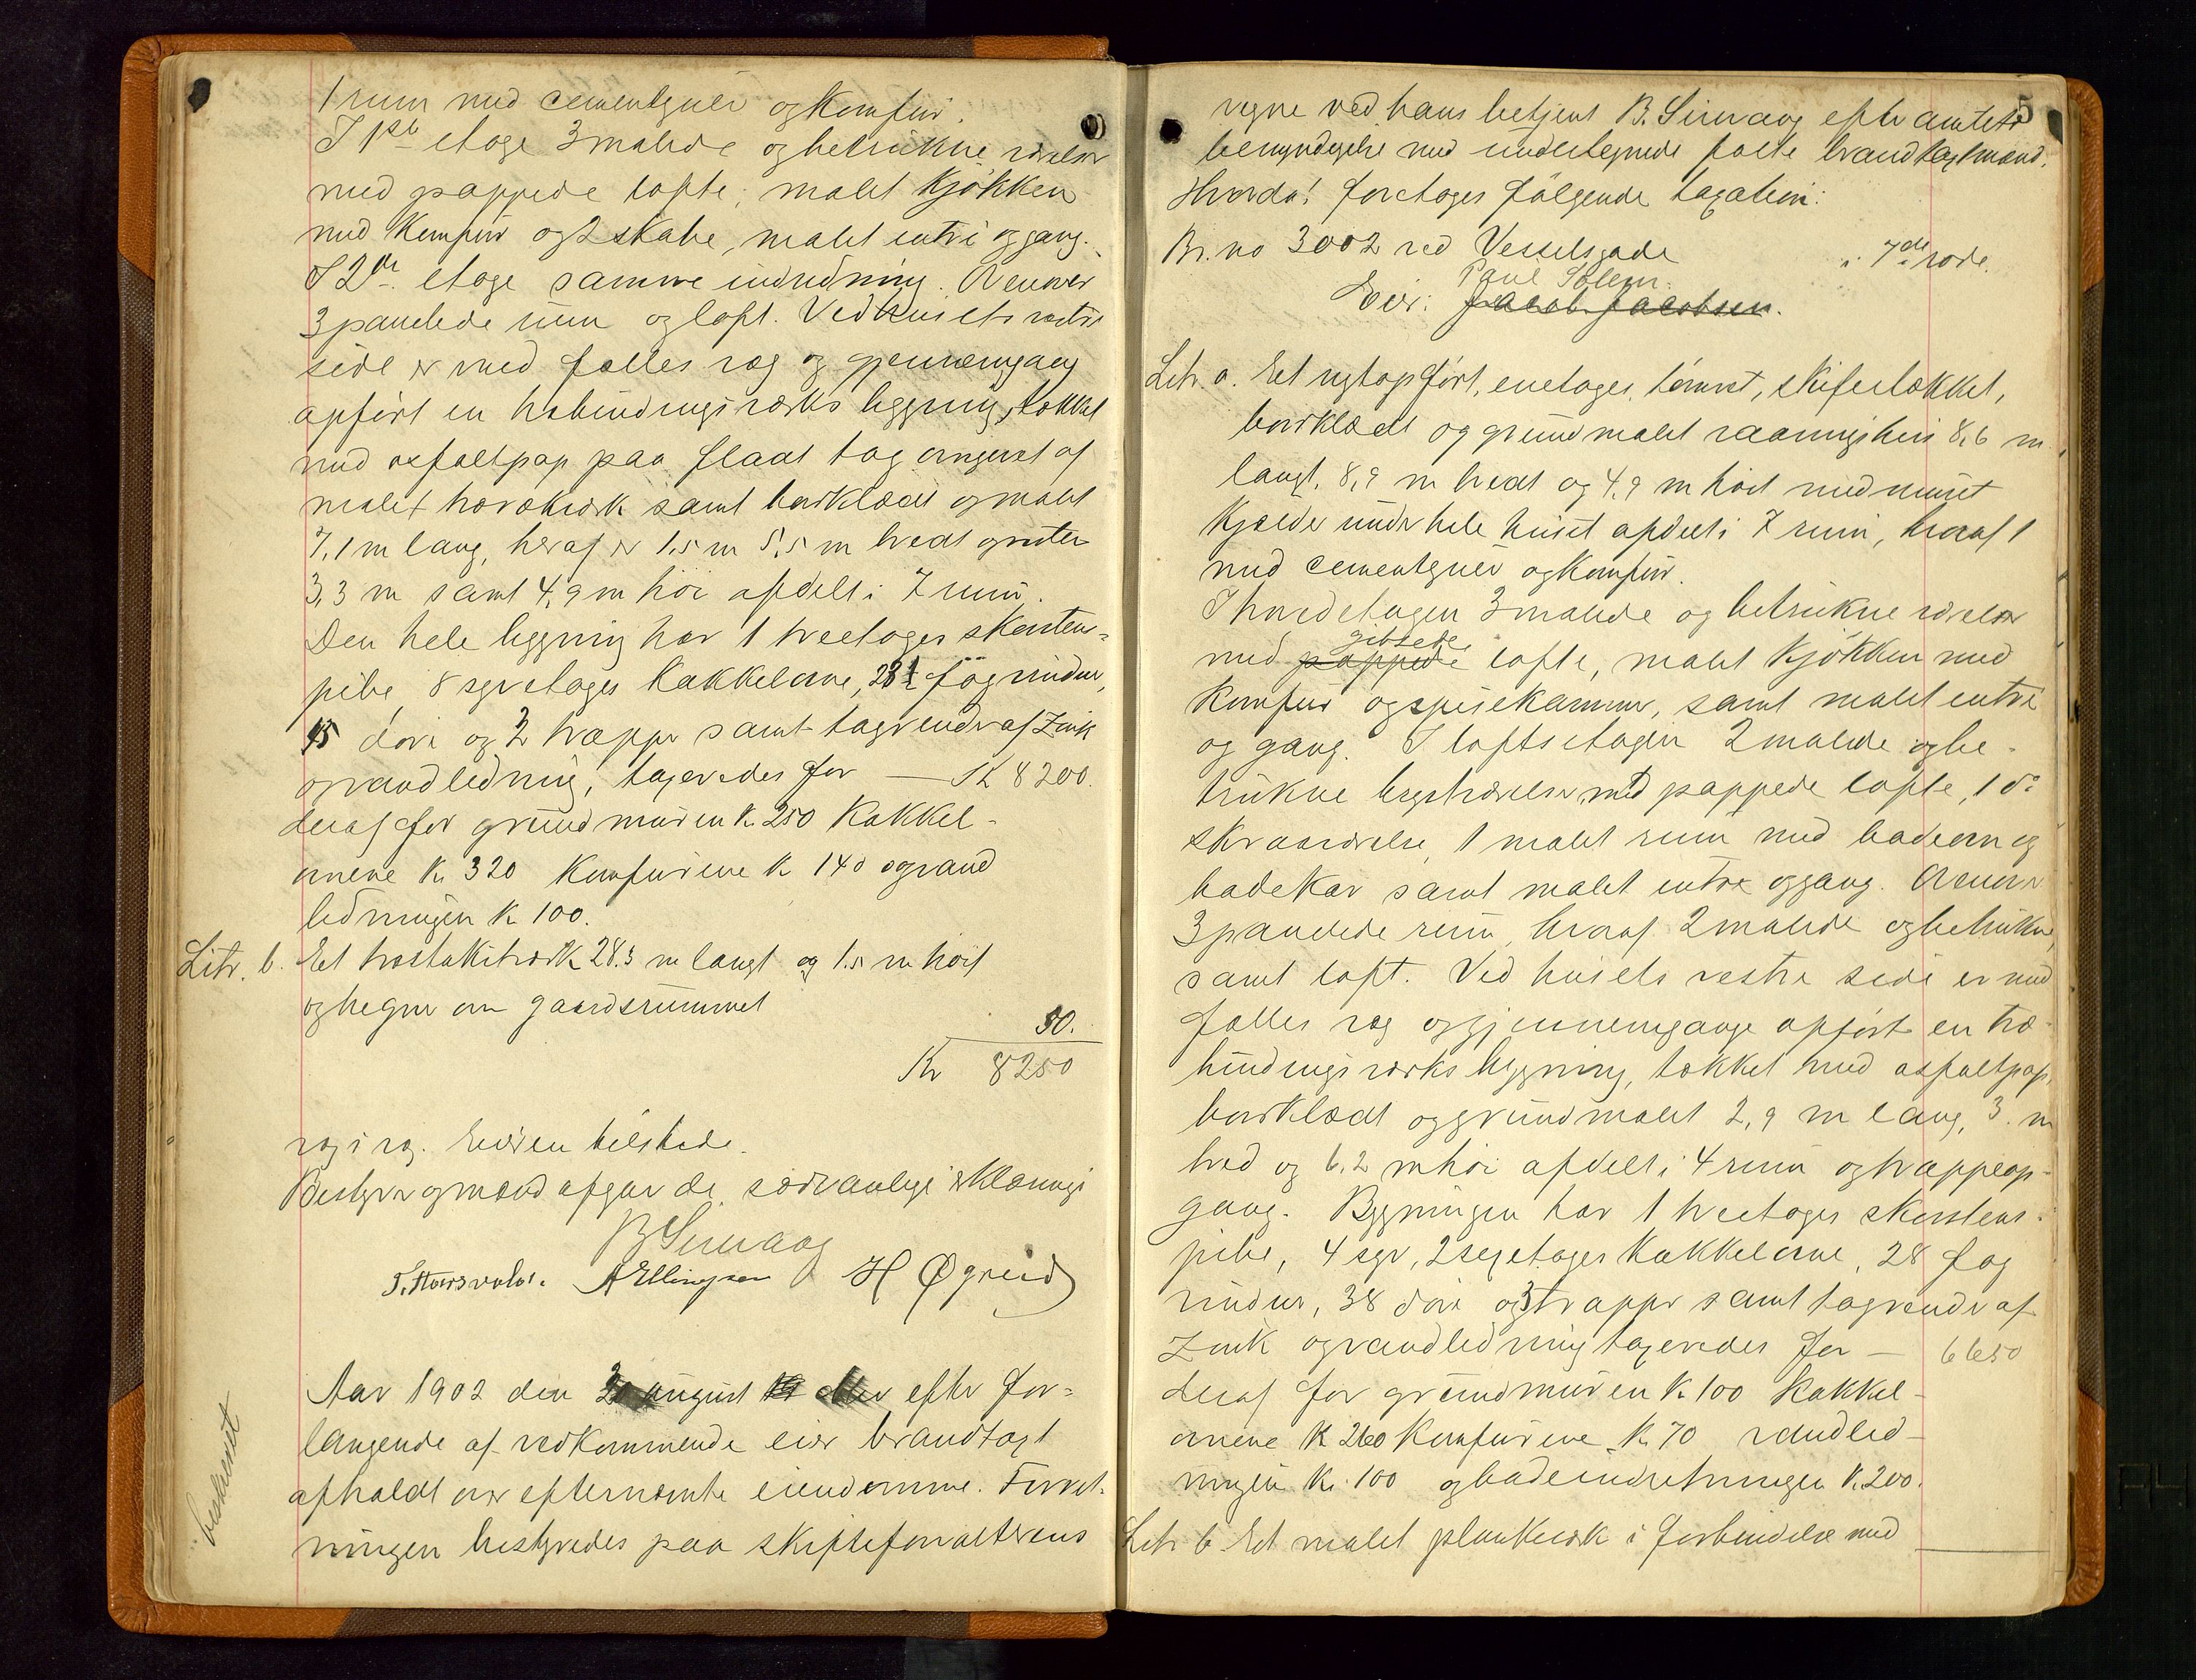 1 rum med cementgruer og komfur.
I 1ste etage 3 malede og betrukne værelser
med pappede lofte, malet kjøkken
med komfur og 2 skabe, malet entre og gang.
I 2den etage samme indredning. Ovenover
3 panelede rum og loft. Ved husets vestre
side er med fælles væg og gjennemgang
opført en træbindingsværks bygning, tækket
med asfaltpap paa fladt tag omgivet af
malet træværk samt bordklædt og malet
7,1 m lang, heraf er 1,5 m 5,5 m bredt og resten
3,3 m samt 4,9 m höi afdelt i 7 rum.
Den hele bygning har 1 treetages skorstens-
pibe, 8 syvetages kakkelovne, 28½ fag vinduer,
45 döre og 3 trapper samt tagrender af zink
og vandledning, taxeredes for — Kr 8200.
deraf for grundmuren K. 250 kakkel-
ovnene K. 320 komfurene K 140 og vand
ledningen K 100.
Litr. b. Et træstakitværk 28.3 m langt og 1.5 m höit
og hegner om gaardsrummet
50.
Kr 8250
væg i væg. Eieren tilstede.
Bestyrer og mænd afgav de sædvanlige erklæringer
B Simaag
T. Hovsvold. A Ellingsen H Øgreid
Aar 1902 den august efter for-
langende af vedkommende eier brandtaxt
afholdt over efternævnte eiendomme. Forret-
ningen bestyredes paa skifteforvalterens
beskrevet
5
vegne ved hans betjent B. Simaag efter amtets
bemyndigelse med undertegnede faste brandtaxtmænd.
Hvorda! foretoges fölgende taxation:
Br. no 3002 ved Vesselsgade i 7de rode.
Paul Solem.
Eier: Jacob Jacobsen.
Litr. a. Et nyt opfört, enetages, tömret, skifertækket,
bordklædt og grundmalet vaaningshus 8,6 m
langt, 8,9 m bredt og 4,9 m höit med muret
kjælder under hele huset afdelt i 7 rum, hvoraf 1
med cementgruer og komfur.
I hovedetagen 3 malede og betrukne værelser
gibsede
med pappede lofte, malet kjökken med
komfur og spisekammer, samt malet entre
og gang. I loftsetagen 2 malede og be-
trukne kvistværelser med pappede lofte, 1 do
skraaværelse, 1 malet rum med badeovn og
badekar samt malet entre og gang. Ovenover
3 panelede rum, hvoraf 2 malede og betrukne,
samt loft. Ved husets vestre side er med
fælles væg og gjennemgange opfört en træ-
bindingsværks bygning, tækket med asfaltpap,
bordklædt og grundmalet 2,9 m lang, 3. m
bred og 6.2 m höi afdelt i 4 rum og trappeop-
gang. Bygningen har 1 treetages skorstens-
pibe, 4 syv, 2 sexetages kakkelovne, 28 fag
vinduer, 38 döre og 3 trapper samt tagrender af
zink og vandledning taxeredes for — 6650
deraf for grundmuren K. 100 kakkel-
ovnene K 260 komfurene K. 70 vandled-
ningen K. 100 og badeindretningen K. 200.
Litr b Et malet plankeværk i forbindelse med